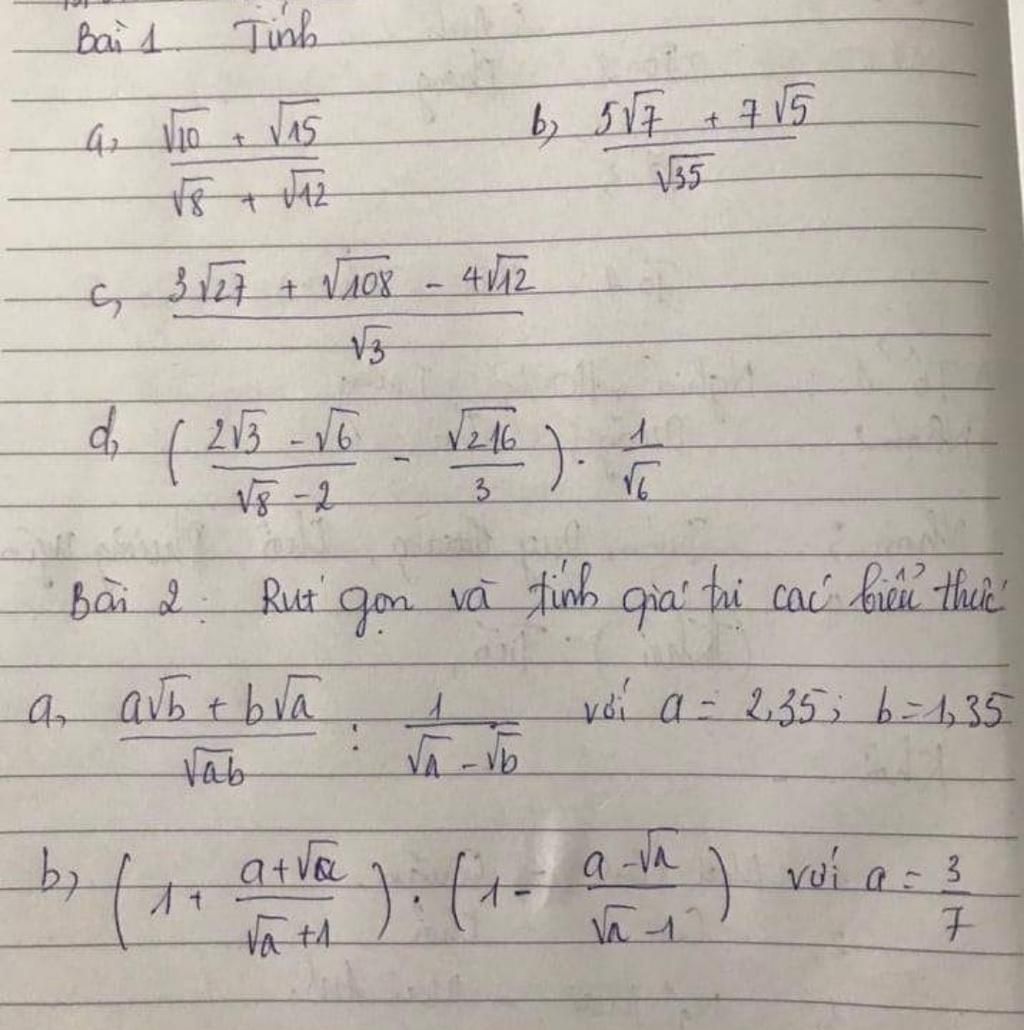 Bài 1. Tính
a, (√10 + √15)/(√8 + √12) b, (5√7 + 7√5)/√35
c, (3√27 + √108 - 4√12)/√3
d, ((2√3 - √6)/(√8 - 2) - √216/3) . 1/√6
Bài 2: Rút gọn và tính giá trị các biểu thức
a, (a√b + b√a)/√ab : 1/(√a - √b) với a = 2,35; b = 1,35
b, (1 + (a + √a)/(√a + 1)) . (1 - (a - √a)/(√a - 1)) với a = 3/7